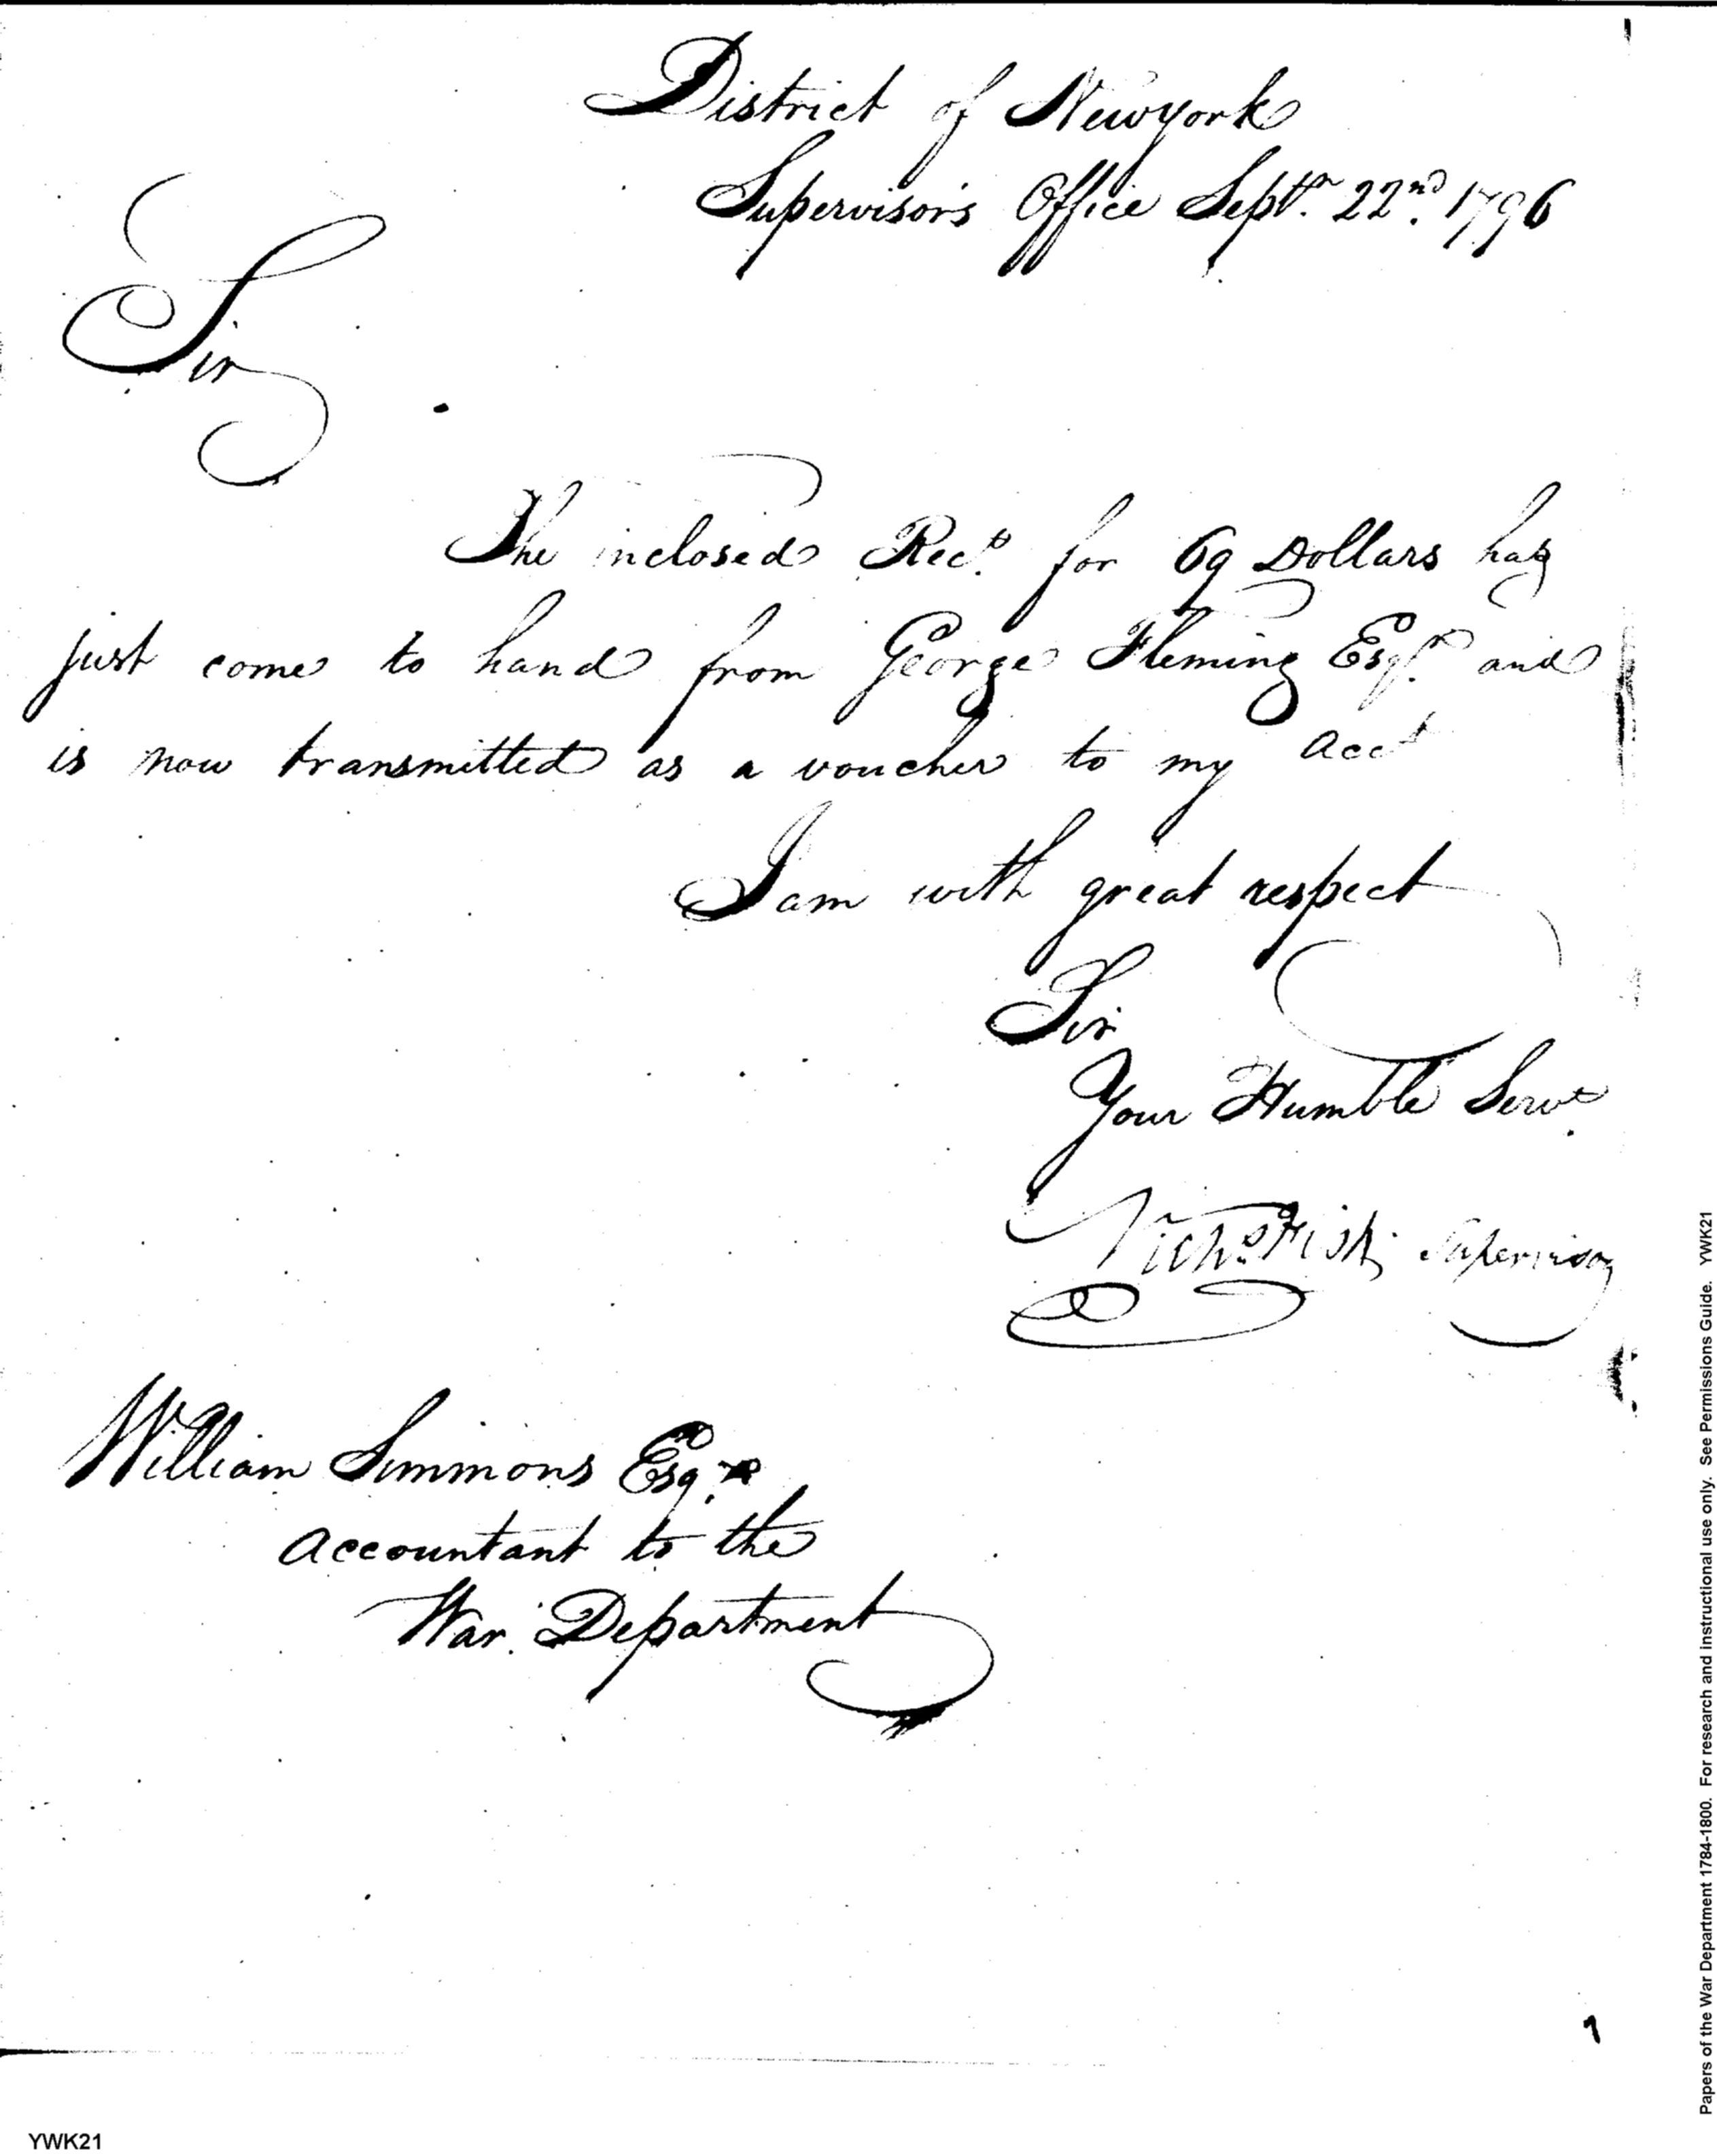 District of Newyork
Supervisor's Office Septr. 22nd. 1796
Sir
The inclosed Rect. for 69 Dollars has
just come to hand from George Fleming Esqr. and
is now transmitted as a voucher to my Acct
I am with great respect
Sir
Your Humble Servt.
Nichs. Fish Supervisor
William Simmons Esqr.
Accountant to the
War Department
1
YWK21
Papers of the War Department 1784-1800. For research and instructional use only. See Permissions Guide. YWK21